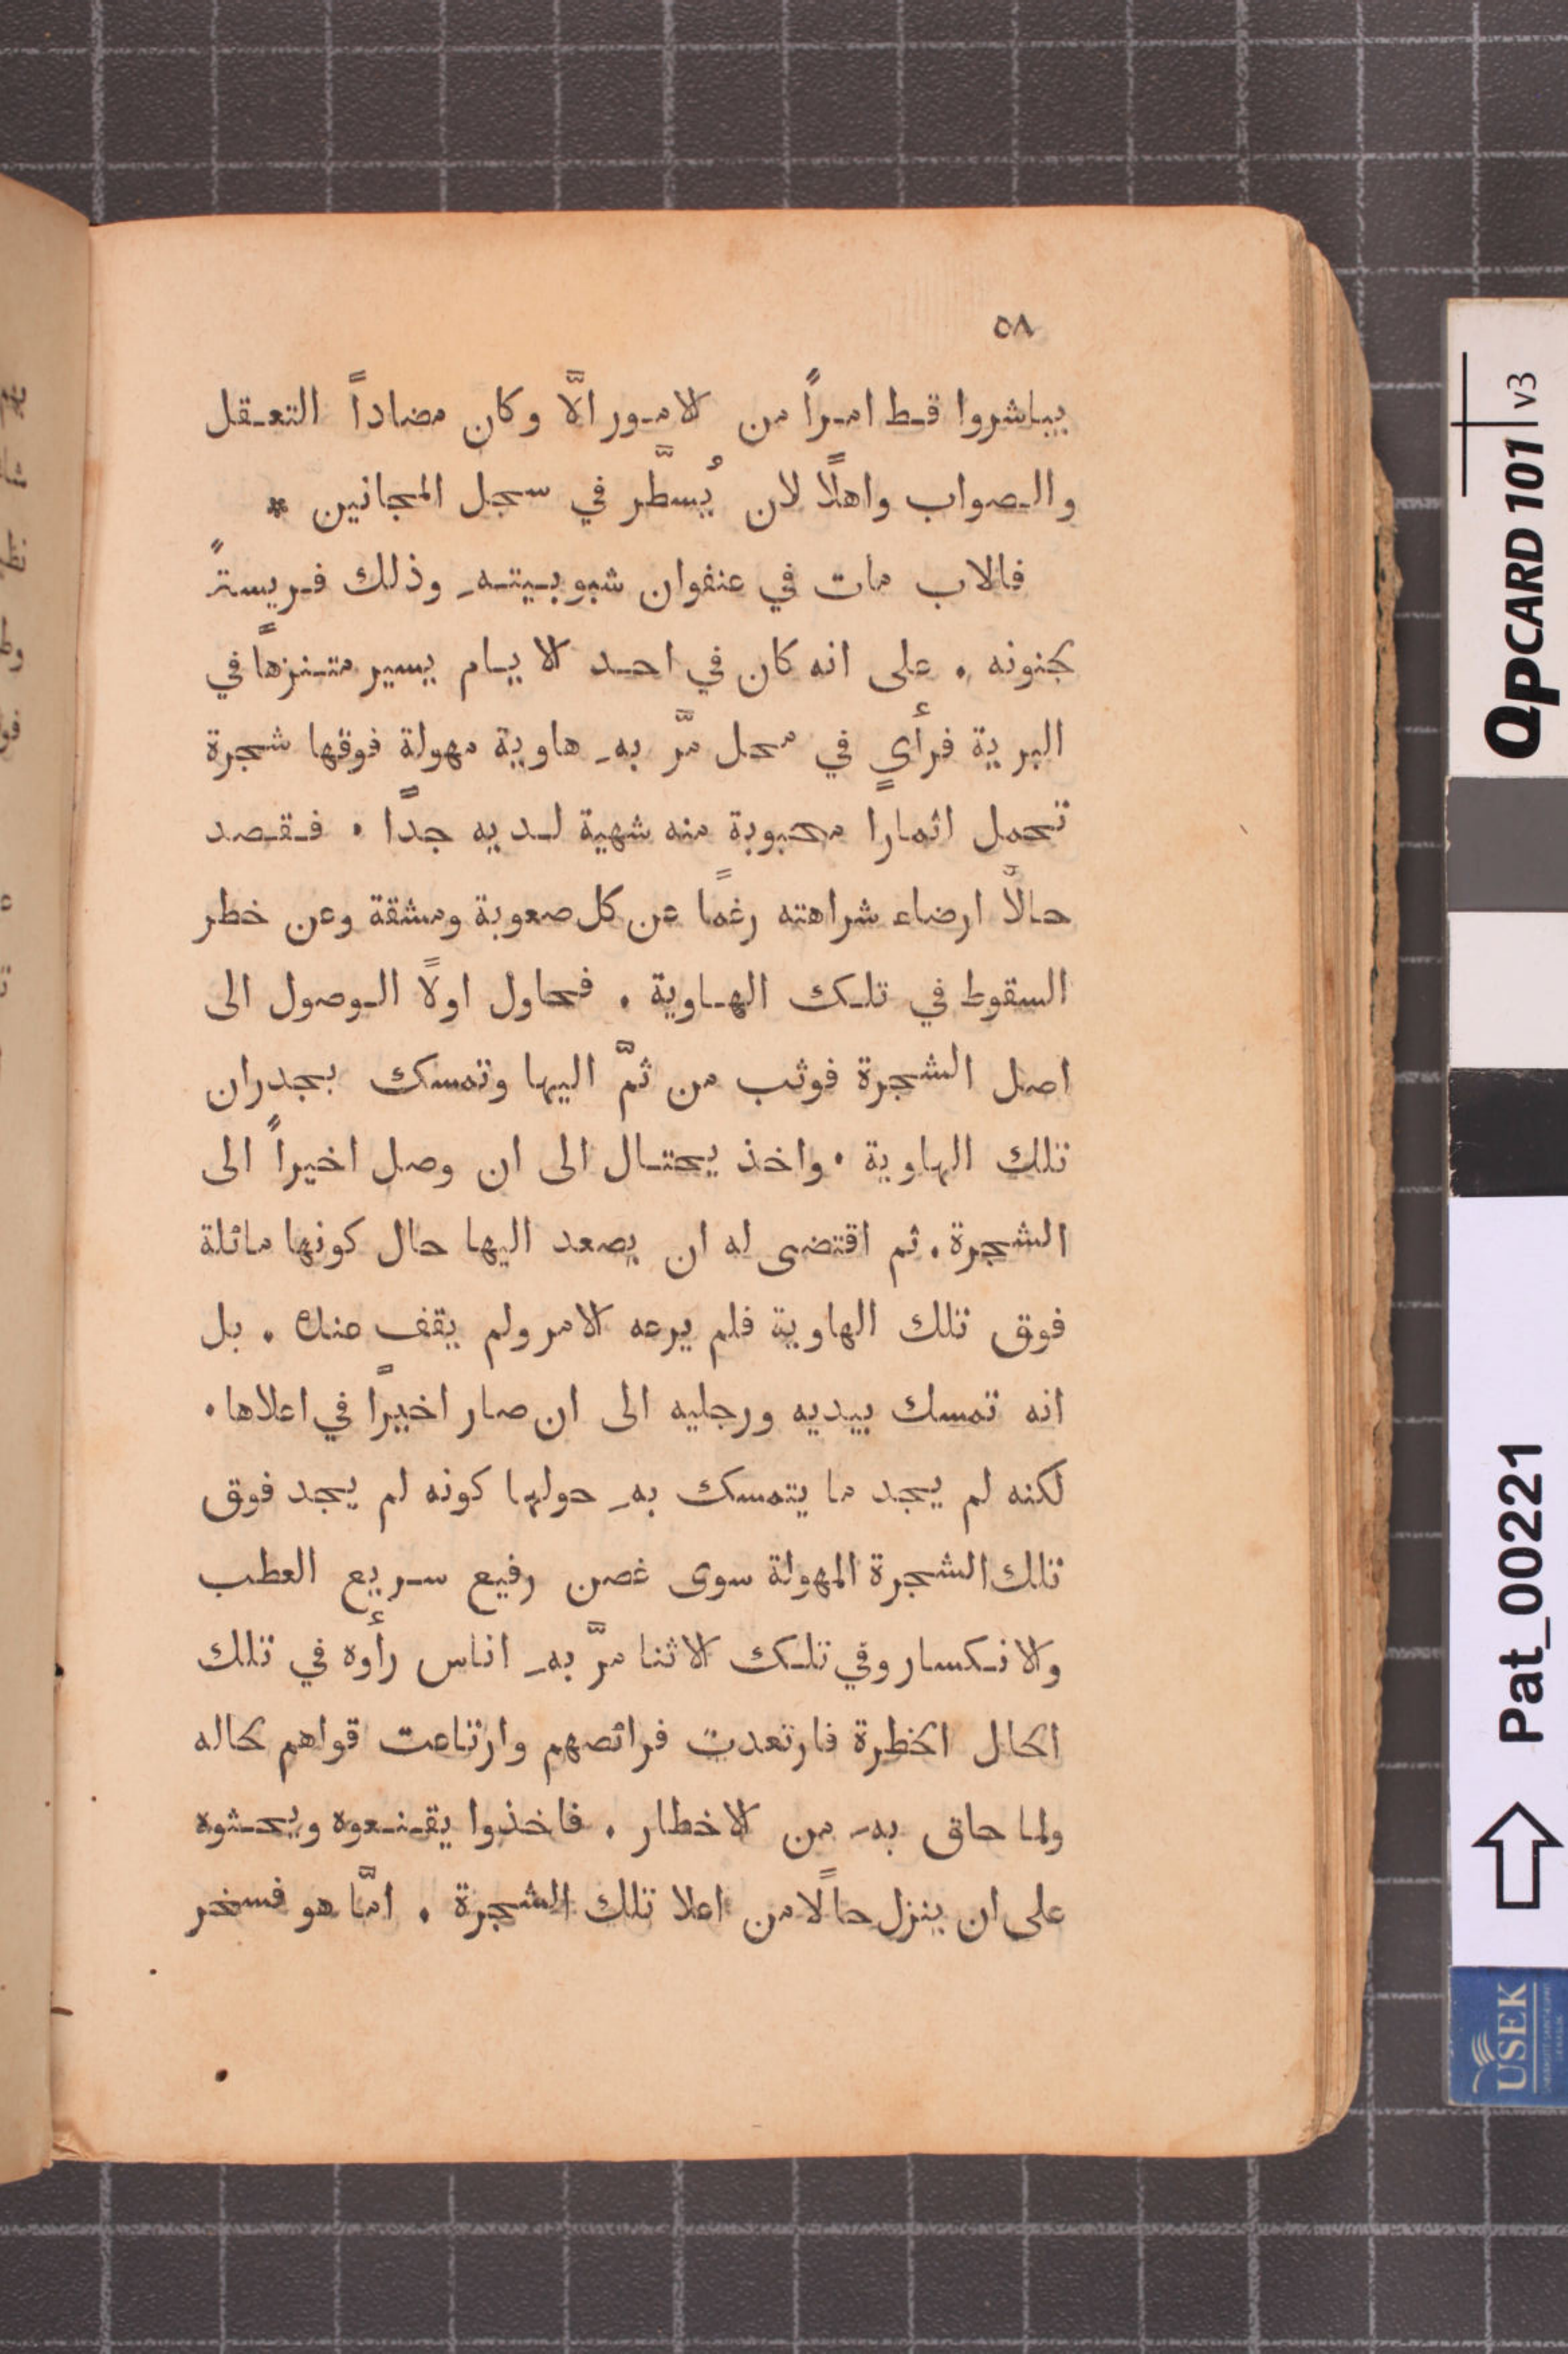 ٥٨
يباشروا قط امراً من الامور الَّا وكان مضاداً التعقل
والصواب واهلًا لان يُسطَّر في سجل المجانين *
فالاب مات في عنفوان شبوبيته وذلك فريسةً
لجنونه . على انه كان في احد الايام يسير متنزهاً في
البرية فرأى في محل مرَّ به هاوية مهولة فوقها شجرة
تحمل اثمارًا محبوبة منه شهية لديه جدًا . فقصد
حالًا ارضاء شراهته رغمًا عن كل صعوبة ومشقة وعن خطر
السقوط في تلك الهاوية . فحاول اولًا الوصول الى
اصل الشجرة فوثب من ثمَّ اليها وتمسك بجدران
تلك الهاوية . واخذ يحتال الى ان وصل اخيراً الى
الشجرة . ثم اقتضى له ان يصعد اليها حال كونها مائلة
فوق تلك الهاوية فلم يرعه الامر ولم يقف عنده . بل
انه تمسك بيديه ورجليه الى ان صار اخيرًا في اعلاها .
لكنه لم يجد ما يتمسك به حولها كونه لم يجد فوق
تلك الشجرة المهولة سوى غصن رفيع سريع العطب
والانكسار وفي تلك الاثنا مرَّ به اناس رأوه في تلك
الحال الخطرة فارتعدت فرائصهم وارتاعت قواهم لحاله
ولما حاق به من الاخطار . فاخذوا يقنعوه ويحثوه
على ان ينزل حالًا من اعلا تلك الشجرة . امَّا هو فسخر
QPCARD 101 v3
Pat_00221
USEK